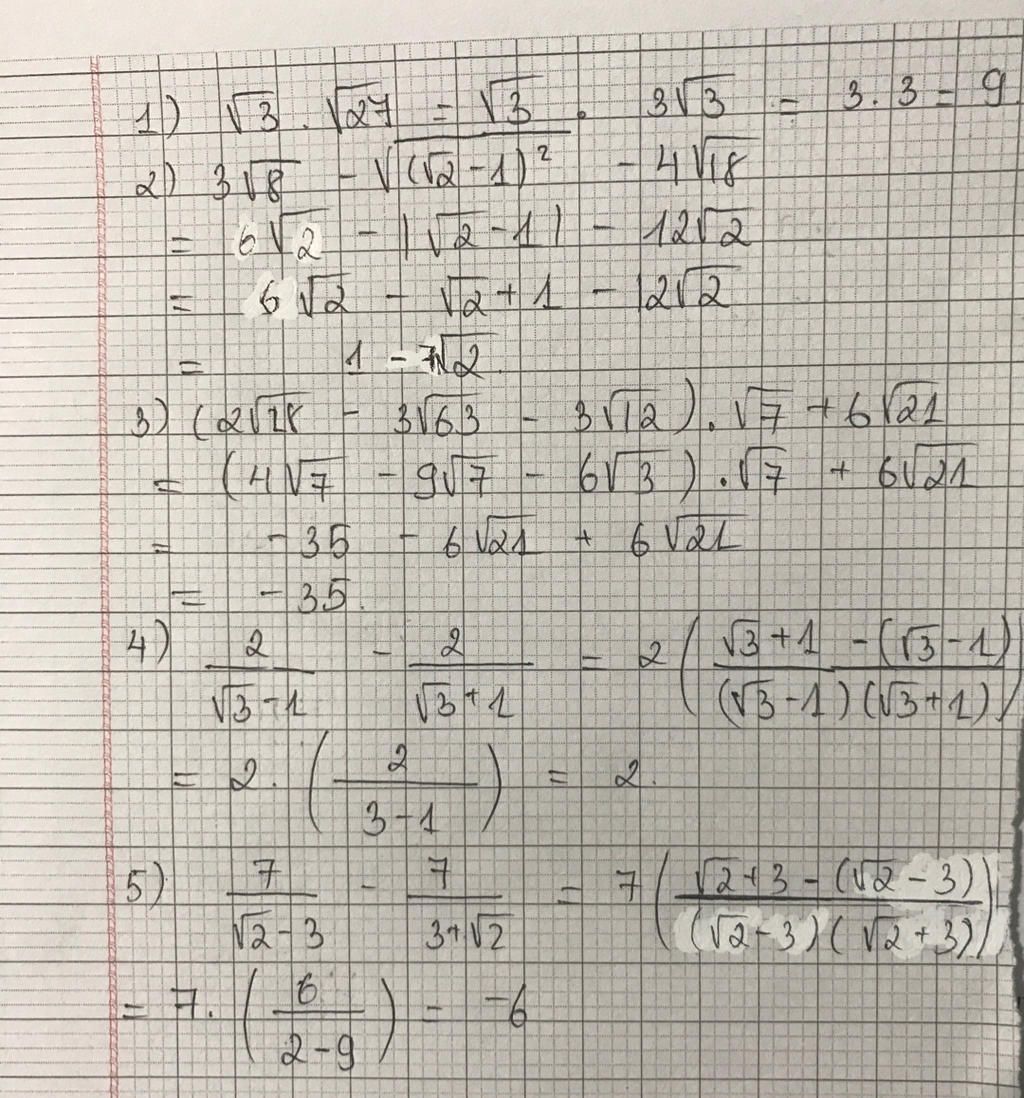 1) √3 . √27 = √3 . 3√3 = 3.3 = 9
2) 3√8 - √((√2-1)²) - 4√18
= 6√2 - |√2-1| - 12√2
= 6√2 - √2 + 1 - 12√2
= 1 - 7√2.
3) (2√28 - 3√63 - 3√12).√7 + 6√21
= (4√7 - 9√7 - 6√3).√7 + 6√21
= -35 - 6√21 + 6√21
= -35.
4) 2/(√3-1) - 2/(√3+1) = 2((√3+1-(√3-1))/((√3-1)(√3+1)))
= 2.(2/(3-1)) = 2.
5) 7/(√2-3) - 7/(3+√2) = 7((√2+3-(√2-3))/((√2-3)(√2+3)))
= 7.(6/(2-9)) = -6